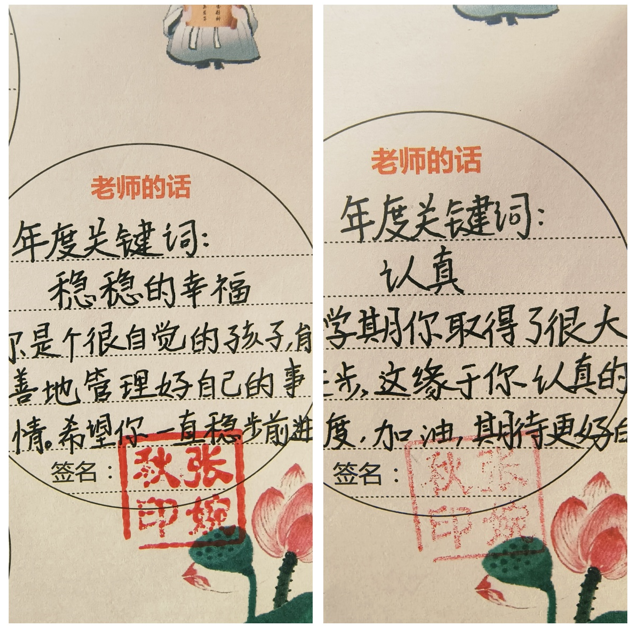 老师的话
年度关键词：
稳稳的幸福
你是个很自觉的孩子，能
善地管理好自己的事
情。希望你一直稳步前进
签名：
张婉秋印
老师的话
年度关键词：
认真
学期你取得了很大
进步，这缘于你认真的
度，加油，期待更好的
签名：
张婉秋印